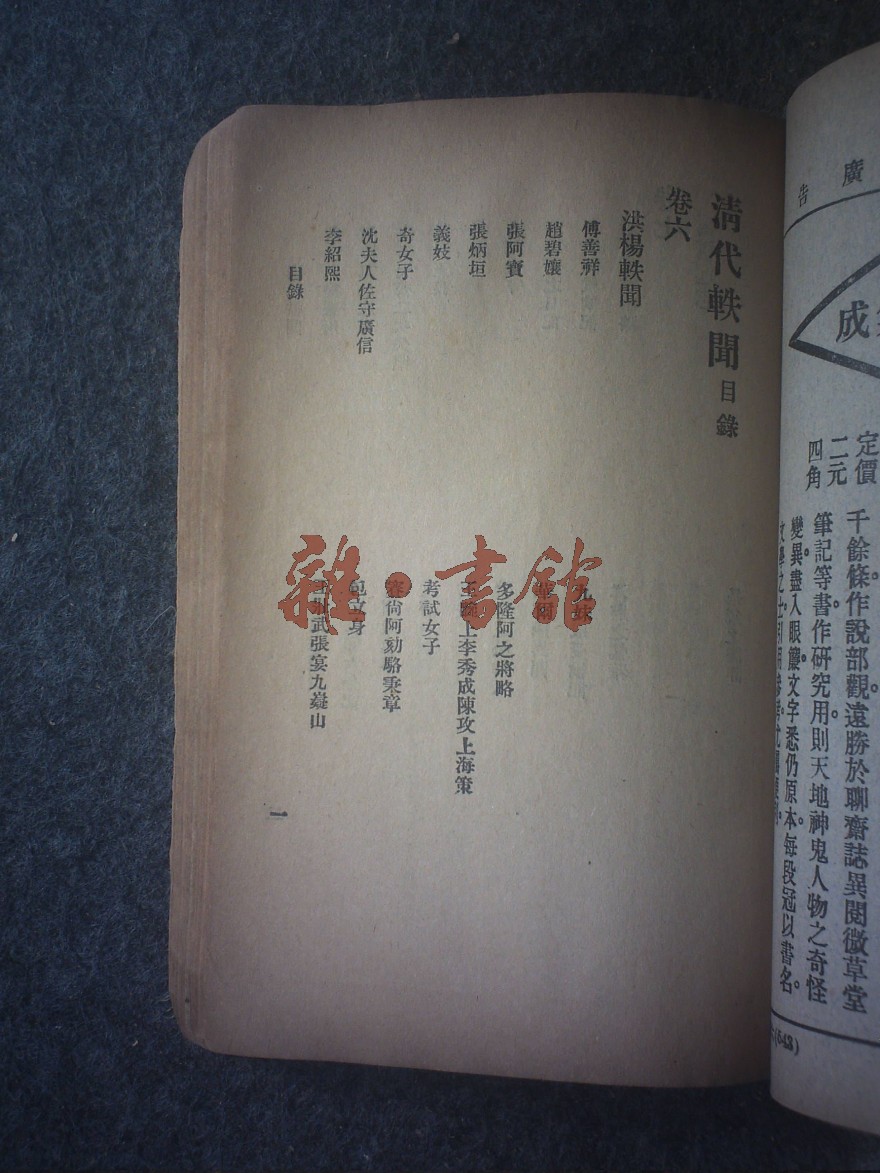 廣告
成
定價
二元
四角
千餘條。作說部觀。遠勝於聊齋誌異閱微草堂
筆記等書。作研究用。則天地神鬼人物之奇怪
變異。盡入眼簾。文字悉仍原本。每段冠以書名。
(643)
清代軼聞 目錄
卷六
洪楊軼聞
傅善祥
九妹
趙碧孃
華爾
張阿寶
多隆阿之將略
張炳垣
上李秀成陳攻上海策
義妓
考試女子
奇女子
容尙阿劾駱秉章
沈夫人佐守廣信
包立身
李紹熙
武張宴九嶷山
目錄
一
雜·書館